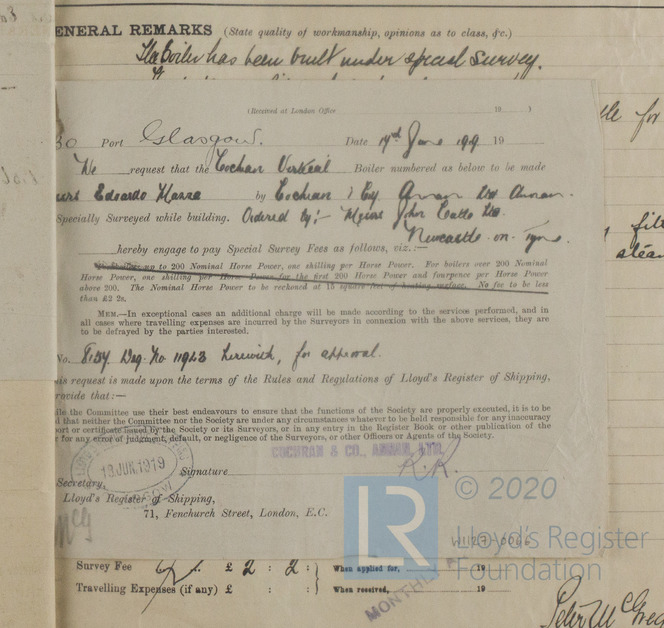 ENERAL REMARKS (State quality of workmanship, opinions as to class, &c.)
The Boiler has been built under special survey.
(Received at London Office 19 )
30 Port Glasgow. Date 17th June 1919 19
We request that the Cochran Vertical Boiler numbered as below to be made
Edoardo Mazza by Cochran & Coy Annan Ltd Annan.
Specially Surveyed while building. Ordered by:- Messrs John
Newcastle-on-Tyne.
hereby engage to pay Special Survey Fees as follows, viz.:—
up to 200 Nominal Horse Power, one shilling per Horse Power. For boilers over 200 Nominal
Horse Power, one shilling per Horse Power for the first 200 Horse Power and fourpence per Horse Power
above 200. The Nominal Horse Power to be reckoned at 15 square feet of heating surface. No fee to be less
than £2 2s.
MEM.—In exceptional cases an additional charge will be made according to the services performed, and in
all cases where travelling expenses are incurred by the Surveyors in connection with the above services, they are
to be defrayed by the parties interested.
No. 8134 Drg. No 11923 herewith, for approval.
is request is made upon the terms of the Rules and Regulations of Lloyd's Register of Shipping,
rovide that:—
ile the Committee use their best endeavours to ensure that the functions of the Society are properly executed, it is to be
d that neither the Committee nor the Society are under any circumstances whatever to be held responsible for any inaccuracy
ort or certificate issued by the Society or its Surveyors, or in any entry in the Register Book or other publication of the
for any error of judgment, default, or negligence of the Surveyors, or other Officers or Agents of the Society.
COCHRAN & CO., ANNAN, LTD.
18 JUN. 1919
Signature
Secretary,
Lloyd's Register of Shipping,
71, Fenchurch Street, London, E.C.
LR © 2020
Lloyd's Register
Foundation
W1127-0066
Survey Fee £ 2 : 2 : When applied for, 19
Travelling Expenses (if any) £ : : When received, 19
MONTHLY
Peter McGreg